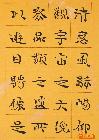 清惠風和暢仰
觀宇宙之大俯
察品類之盛所
以遊目騁懷足